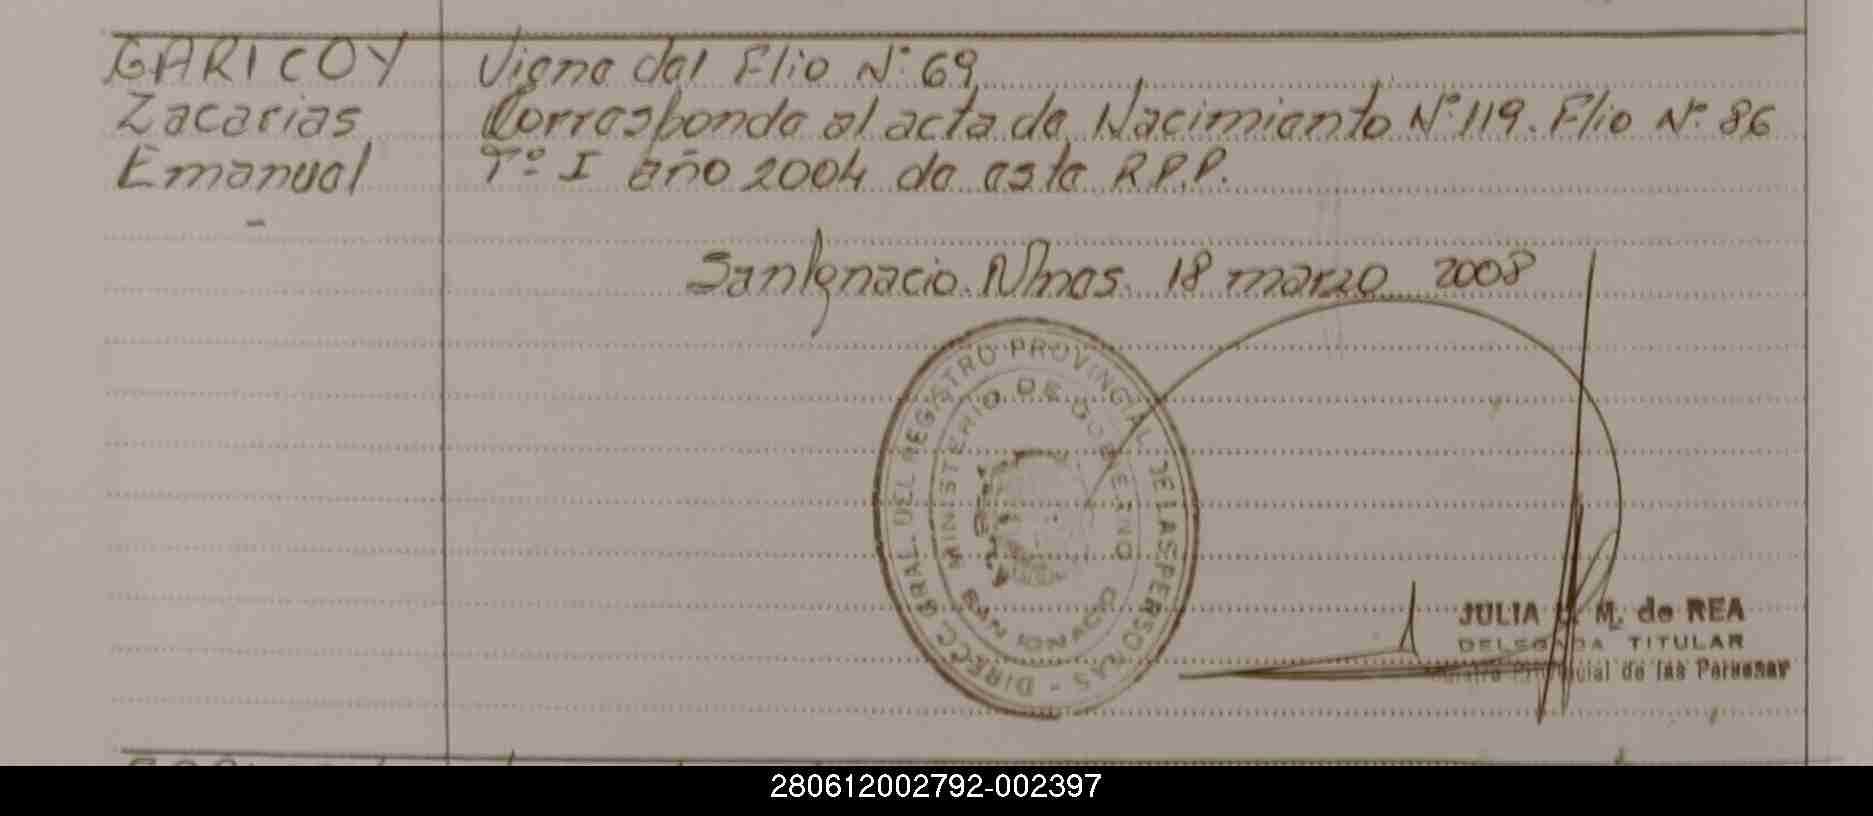 GARICOY
Zacarias
Emanuel
-
Viene del Flio Nº 69
Corresponde al acta de Nacimiento Nº 119. Flio Nº 86
Tº I año 2004 de este R.P.P.
San Ignacio. Mnes. 18 marzo 2008
DIRECC. GRAL. DEL REGISTRO PROVINCIAL DE LAS PERSONAS -
MINISTERIO DE GOBIERNO
SAN IGNACIO
JULIA M. de REA
DELEGADA TITULAR
Provincial de las Personas
280612002792-002397